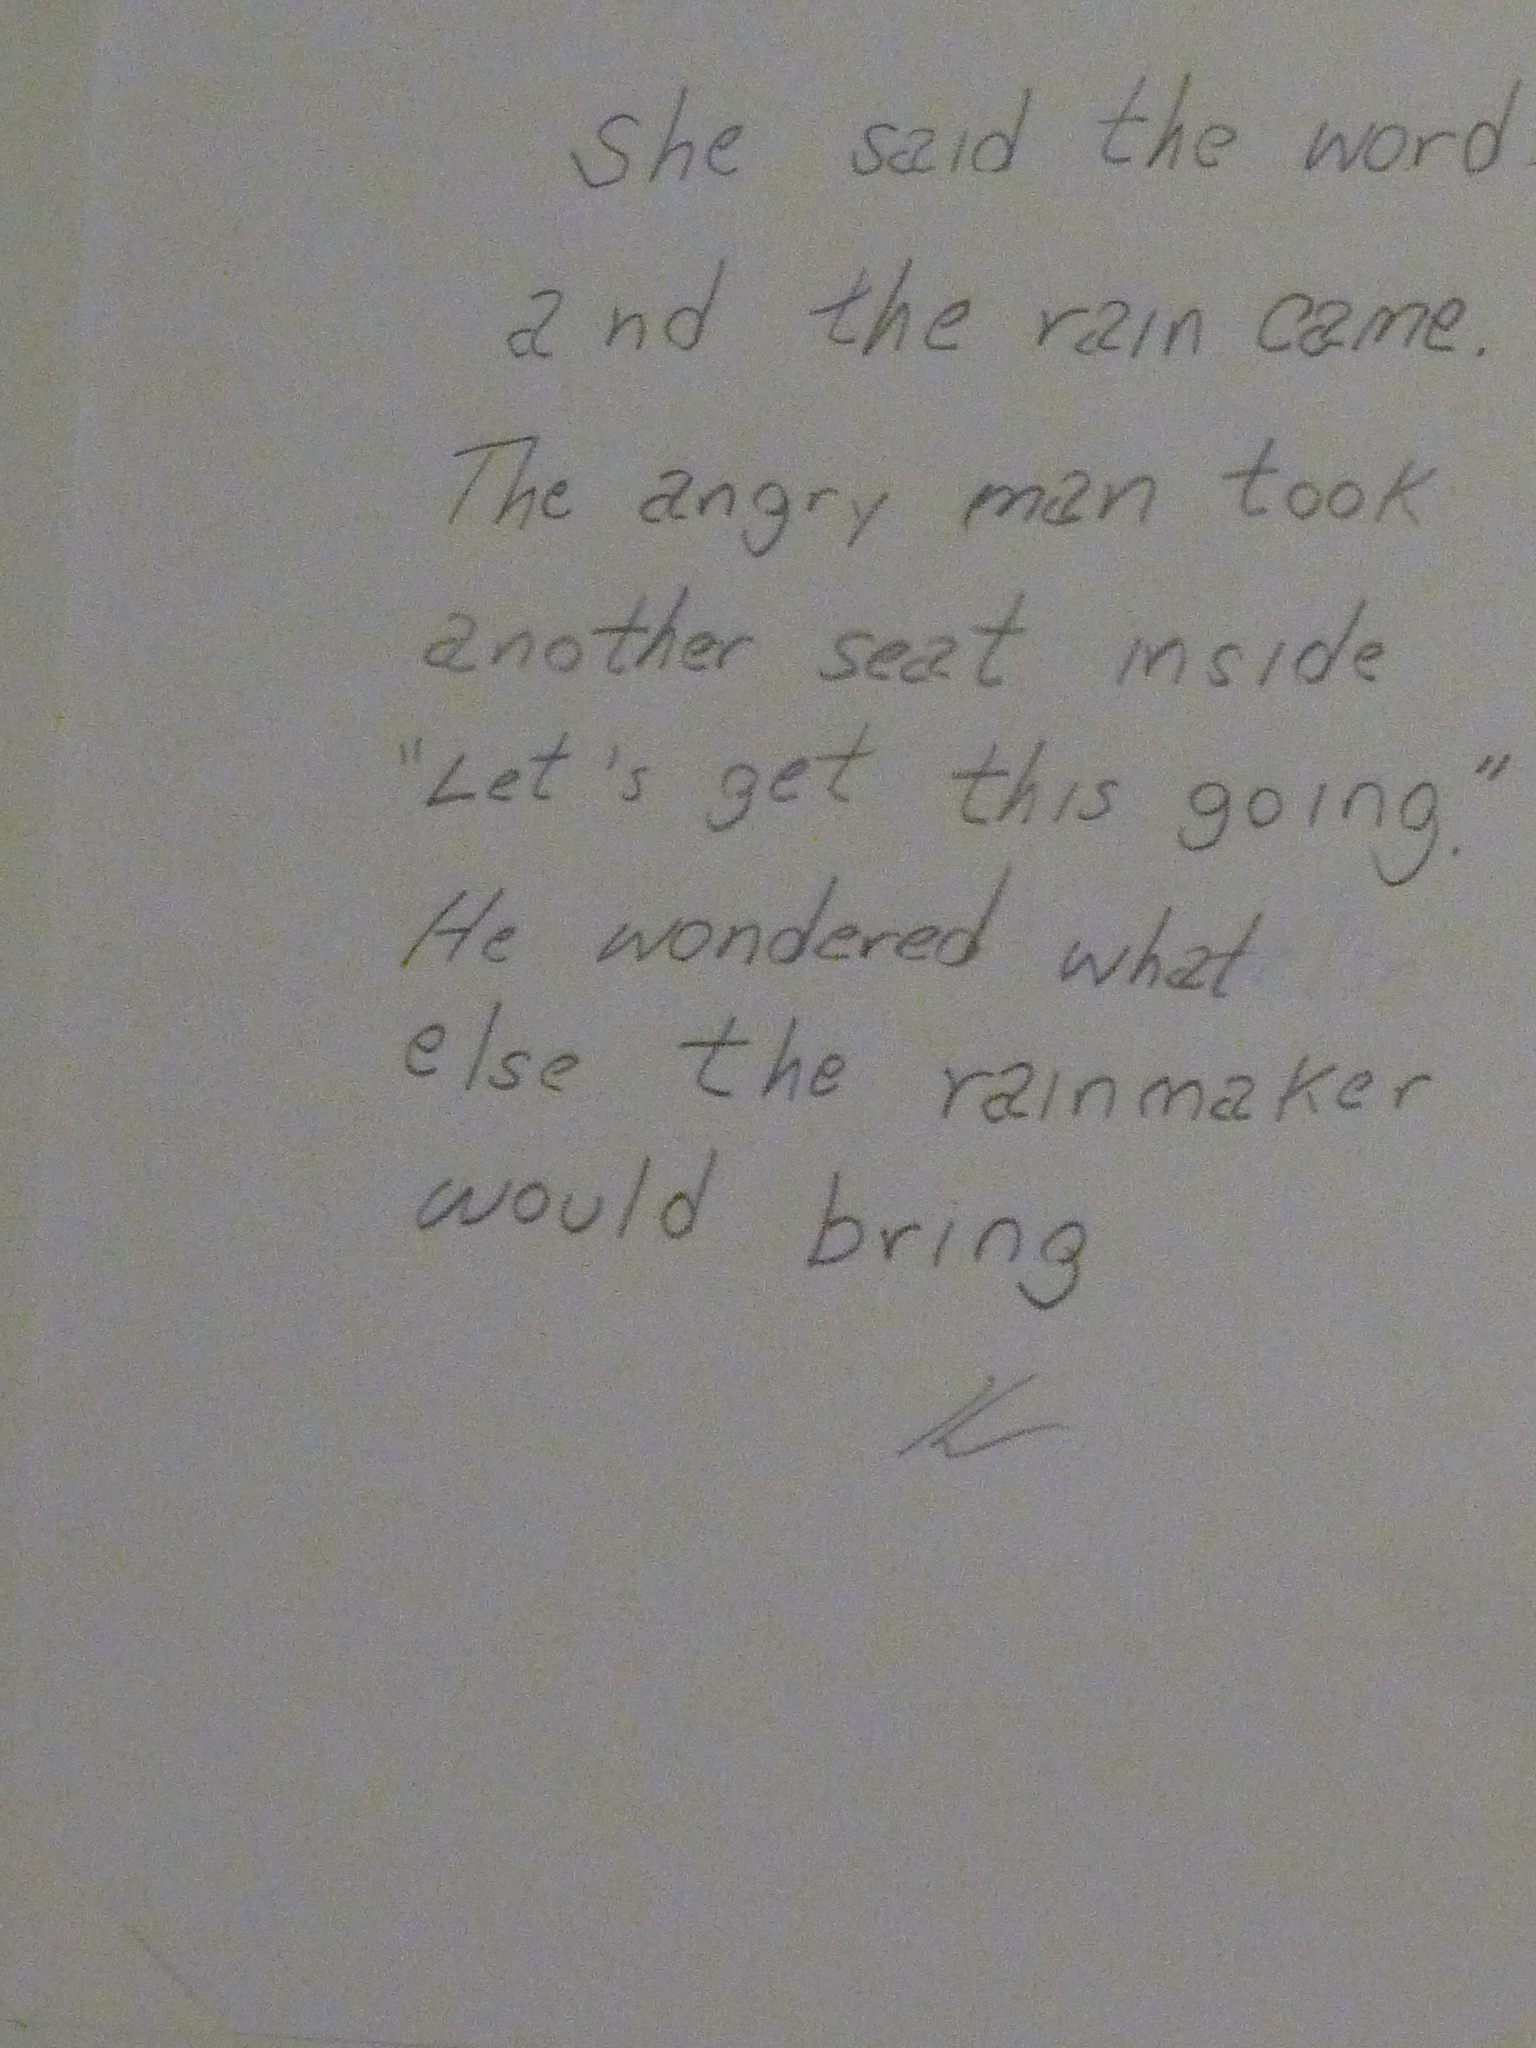 She said the word.
and the rain came.
The angry man took
another seat inside
"Let's get this going."
He wondered what
else the rainmaker
would bring